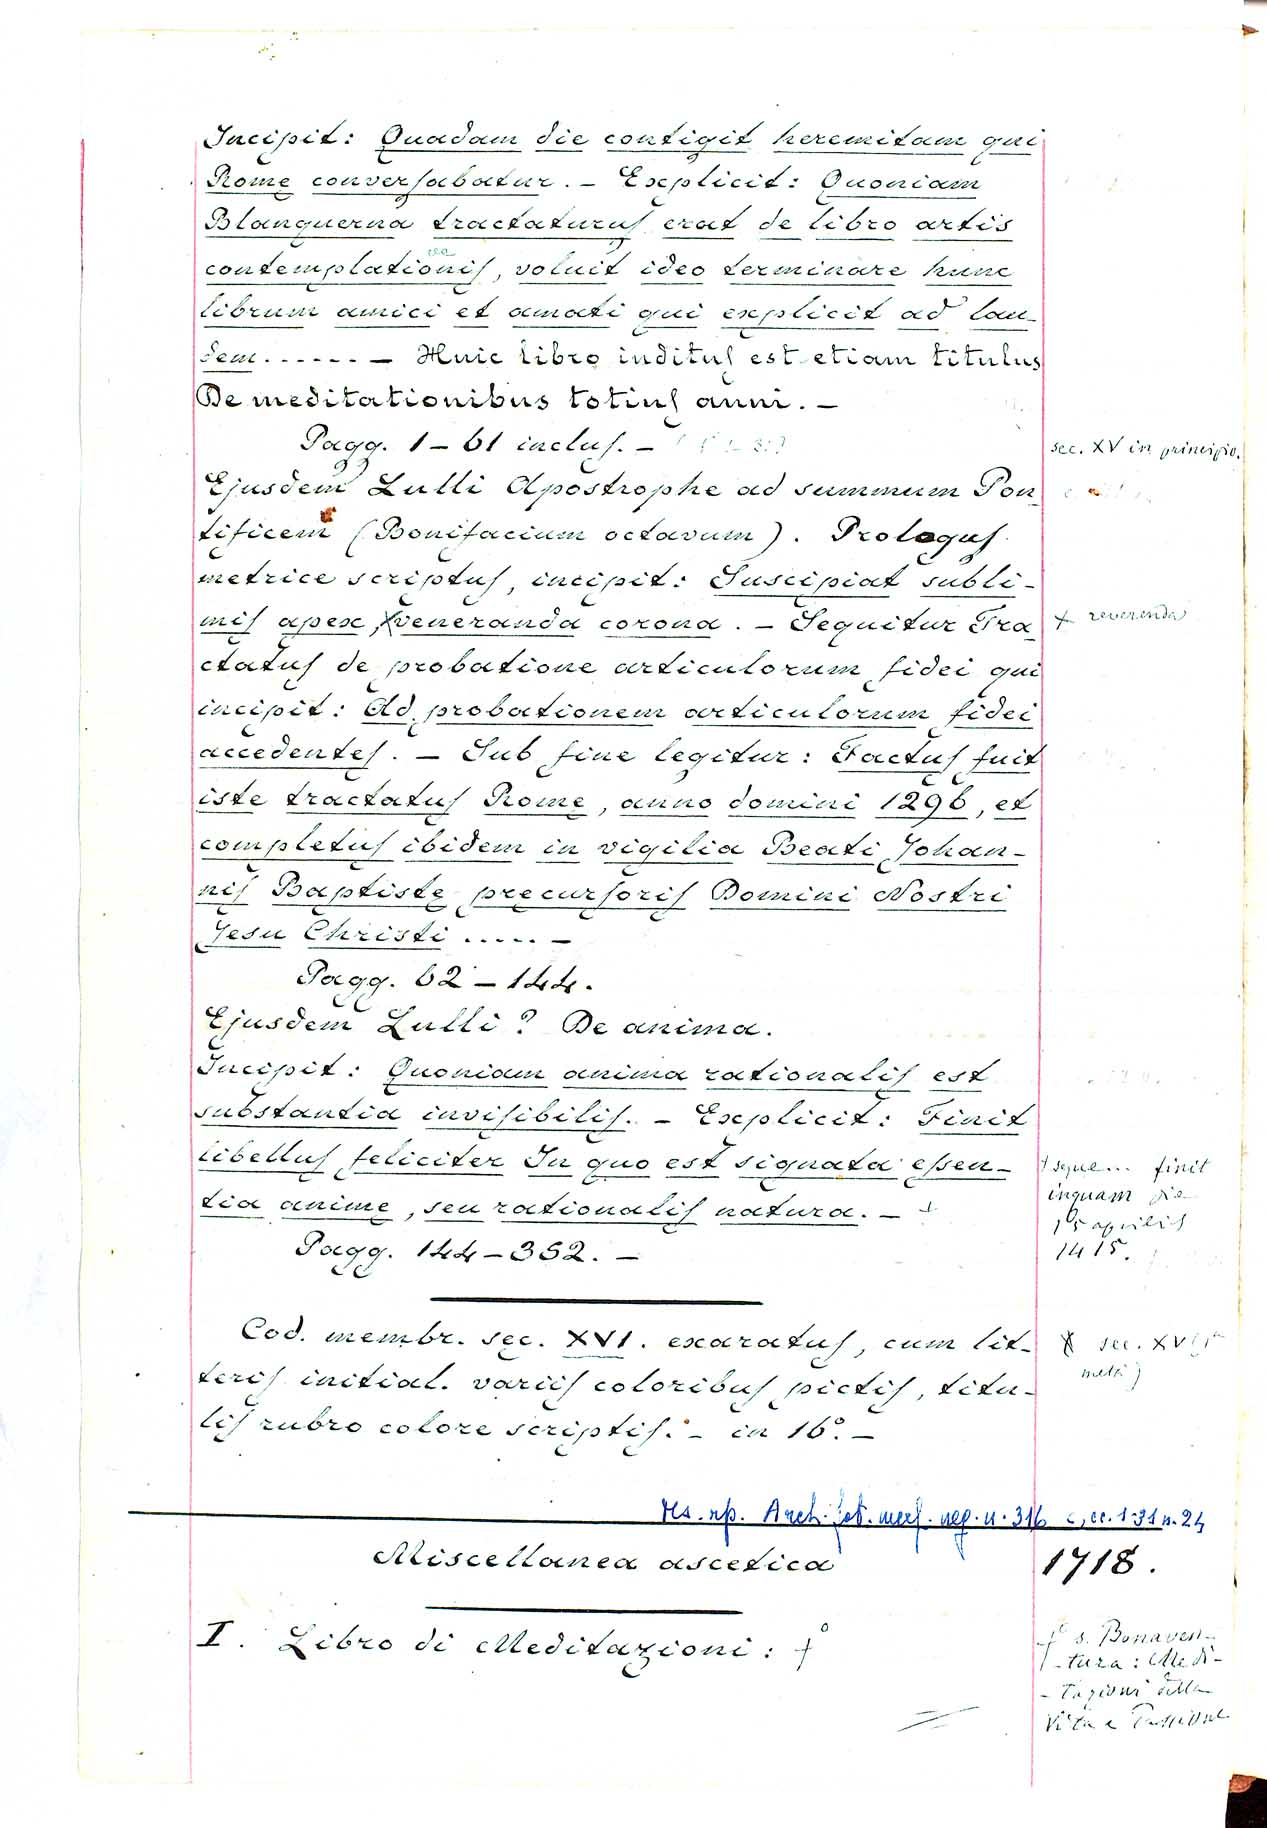 Incipit: Quadam die contigit heremitam qui
Rome conversabatur. – Explicit: Quoniam
Blanquerna tractaturus erat de libro artis
contemplationis, voluit ideo terminare hunc
librum amici et amati qui explicit ad lau-
dem ...... – Huic libro inditus est etiam titulus
De meditationibus totius anni. –
Pagg. 1 – 61 inclus. –
sec. XV in principio.
Ejusdem Lulli Apostrophe ad summum Pon-
tificem (Bonifacium octavum). Prologus
metrice scriptus, incipit: Suscipiat subli-
mis apex, x veneranda corona. – Sequitur Tra-
+ reverenda
ctatus de probatione articulorum fidei qui
incipit: Ad probationem articulorum fidei
accedentes. – Sub fine legitur: Factus fuit
iste tractatus Rome, anno domini 1296, et
completus ibidem in vigilia Beati Johan-
nis Baptiste precursoris Domini Nostri
Jesu Christi ..... –
Pagg. 62 – 144.
Ejusdem Lulli? De anima.
Incipit: Quoniam anima rationalis est
substantia invisibilis. – Explicit: Finit
libellus feliciter In quo est signata essen-
tia anime, seu rationalis natura. – +
... finit
inquam die
15 aprilis
1415.
Pagg. 144 – 352. –
Cod. membr. sec. XVI. exaratus, cum lit-
teris initial. variis coloribus pictis, titu-
lis rubro colore scriptis. – in 16°. –
sec. XV
Ms. rip. Arch. fot. neg. n. 316 c, cc. 1-31 n. 24
Miscellanea ascetica
1718.
I. Libro di Meditazioni: +°
+° s. Bonaven-
-tura: Medi-
-tazioni della
Vita e Passione